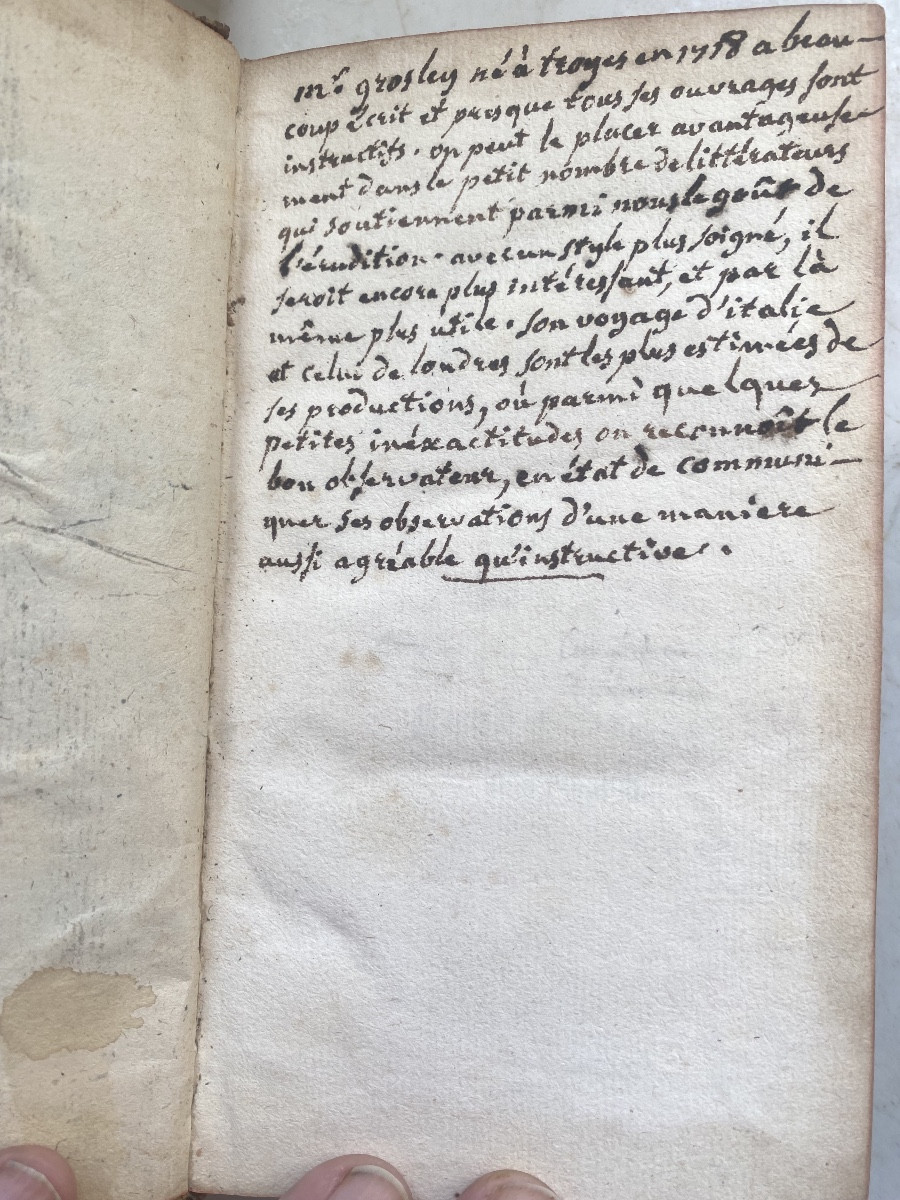 mr. grosley né à troyes en 1718 a beau-
coup écrit et presque tous ses ouvrages sont
instructifs. on peut le placer avantageuse-
ment dans le petit nombre de littérateurs
qui soutiennent parmi nous le goût de
l'érudition. avec un style plus soigné, il
seroit encore plus intéressant, et par là
même plus utile. son voyage d'italie
et celui de londres sont les plus estimées de
ses productions, où parmi quelques
petites inéxactitudes on reconnoît le
bon observateur, en état de communi-
quer ses observations d'une maniere
aussi agréable qu'instructive.